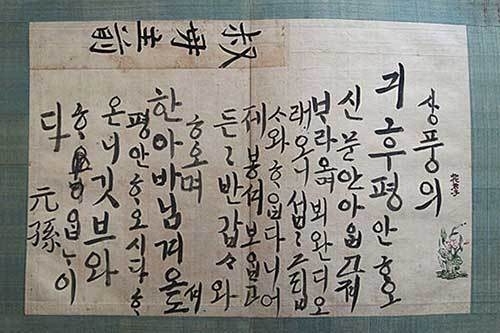 叔母主前
상풍의
긔후 평안ᄒᆞ오
신 문안 아ᄋᆞᆸ고져
ᄇᆞ라오며 뵈완디 오
래오니 섭〻 그립
ᄉᆞ와 ᄒᆞᄋᆞᆸ다니 어
제 봉셔 보ᄋᆞᆸ고
든〻 반갑ᄉᆞ와
ᄒᆞ오며
한아바님겨오셔도
평안ᄒᆞ오시다 ᄒᆞ
온니 깃브와
ᄒᆞᄋᆞᆸᄂᆞ이
다
元孫